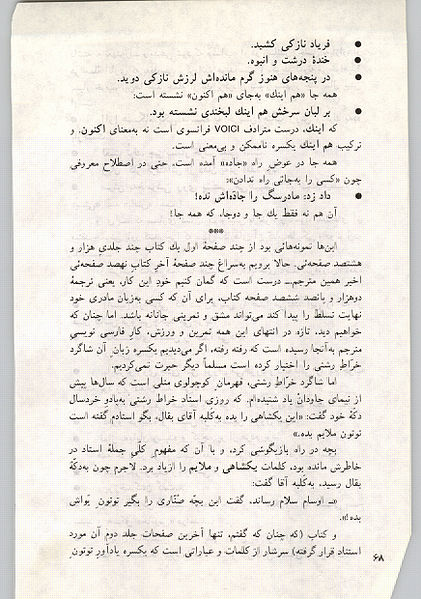 ● فریاد نازکی کشید.
● خندهٔ درشت و انبوه.
● در پنجه‌های هنوز گرم مانده‌اش لرزش نازکی دوید.
همه جا «هم اینك» به‌جای «هم اکنون» نشسته است:
● بر لبان سرخش هم اینك لبخندی نشسته بود.
که اینك، درست مترادف VOICI فرانسوی است نه به‌معنای اکنون. و
ترکیب هم اینك یکسره ناممکن و بی‌معنی است.
همه جا در عوض راه «جاده» آمده است، حتی در اصطلاح معروفی
چون «کسی را به‌جائی راه ندادن»:
● داد زد: مادرسگ را جاده‌اش نده!
آن هم نه فقط یك جا و دوجا، که همه جا!
***
این‌ها نمونه‌هائی بود از چند صفحهٔ اول یك کتاب چند جلدی هزار و
هشتصد صفحه‌ئی. حالا برویم به‌سراغ چند صفحهٔ آخر کتاب نهصد صفحه‌ئی
اخیر همین مترجم ــ درست است که گمان کنیم خود این کار، یعنی ترجمهٔ
دوهزار و پانصد ششصد صفحه کتاب، برای آن که کسی به‌زبان مادری خود
نهایت تسلط را پیدا کند می‌تواند مشق و تمرینی جانانه باشد. اما چنان که
خواهیم دید، تازه در انتهای این همه تمرین و ورزش، کار فارسی نویسی
مترجم به‌آنجا رسیده است که رفته رفته، اگر می‌دیدیم یکسره زبان آن شاگرد
خراط رشتی را اختیار کرده است مسلماً دیگر حیرت نمی‌کردیم.
اما شاگرد خراط رشتی، قهرمان کوچولوی مثلی است که سال‌ها پیش
از نیمای جاودان‌یاد شنیده‌ام. که روزی استاد خراط رشتی به‌پادو خردسال
دکهٔ خود گفت: «این یکشاهی را بده به‌کلبه آقای بقال، بگو استادم گفته است
توتون ملایم بده.»
بچه در راه بازیگوشی کرد، و با آن که مفهوم کلّی جملهٔ استاد در
خاطرش مانده بود، کلمات یکشاهی و ملایم را ازیاد برد. لاجرم چون به‌دکهٔ
بقال رسید، به‌کلبه آقا گفت:
«ــ اوسام سلام رساند، گفت این بچّه صنّاری را بگیر توتون یواش
بده!».
و کتاب (که چنان که گفتم، تنها آخرین صفحات جلد دوم آن مورد
استناد قرار گرفته) سرشار از کلمات و عباراتی است که یکسره یادآور توتون
۶۸